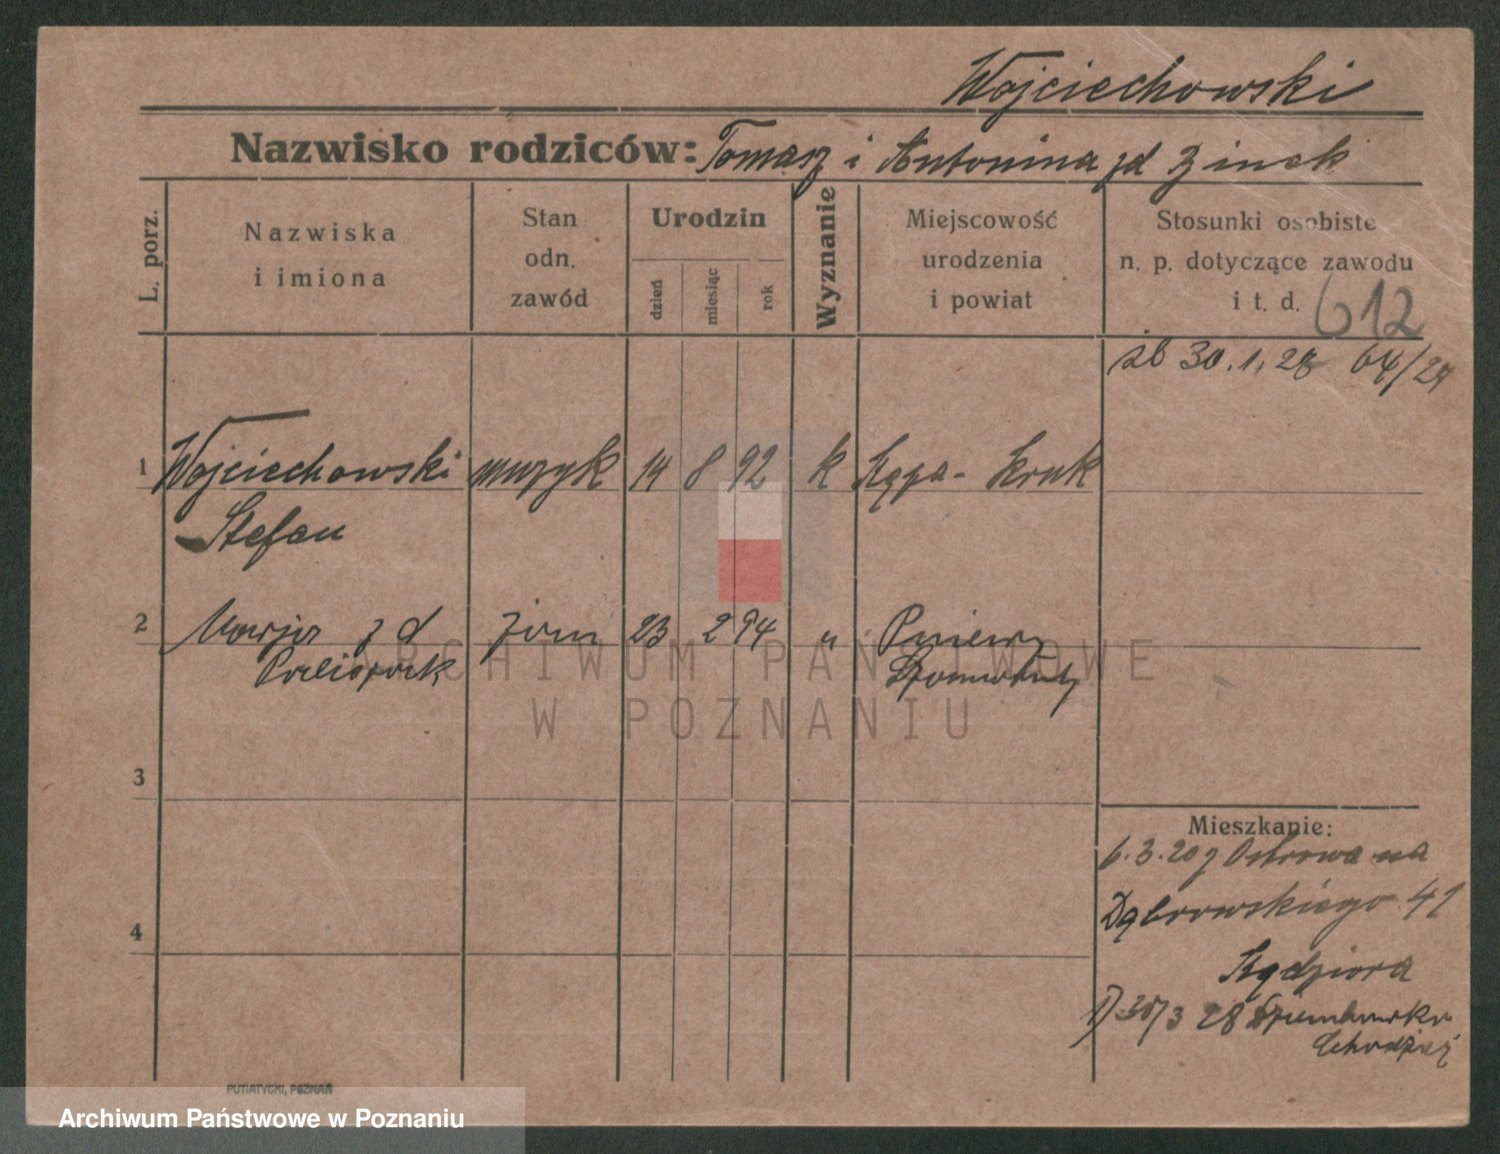 Wojciechowski
Nazwisko rodziców: Tomasz i Antonina zd Zinek
L. porz.
Nazwiska
i imiona
Stan
odn.
zawód
Urodzin
dzień
miesiąc
rok
Wyznanie
Miejscowość
urodzenia
i powiat
Stosunki osobiste
n. p. dotyczące zawodu
i t. d.
612
30.1.28 64/28
1 Wojciechowski muzyk 14 8 92 k Kępa-
Stefan
2 Marja zd żona 23 2 94 " Pniewy
3
4
Mieszkanie:
6.3.20 z Ostrowa na
Dąbrowskiego 41
Kędziora
28
PUTIATYCKI, POZNAŃ
ARCHIWUM PAŃSTWOWE
W POZNANIU
Archiwum Państwowe w Poznaniu